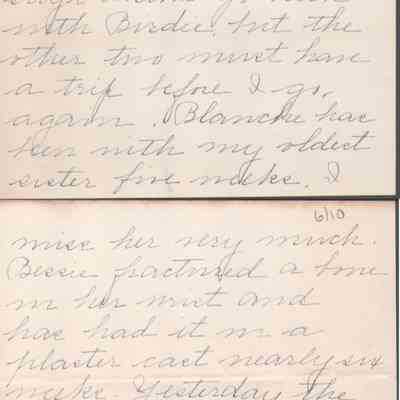 with Birdie, but the
other two must have
a trip before I go,
again. Blanche has
been with my oldest
sister five weeks. I
6/10
miss her very much.
Bessie fractured a bone
in her wrist and
has had it in a
plaster cast nearly six
weeks. Yesterday the